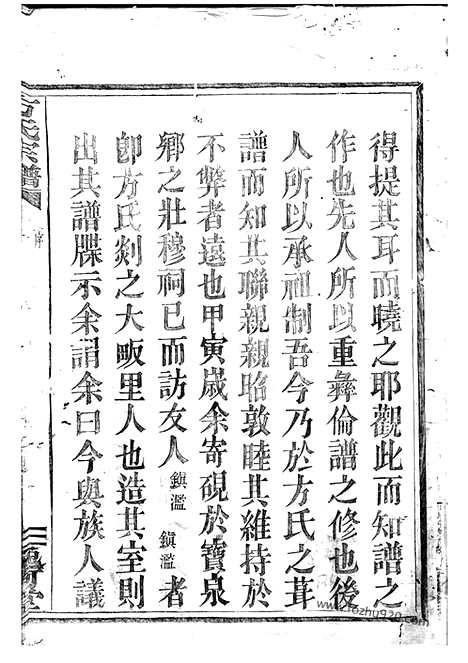 得提其耳而曉之耶觀此而知譜之
作也先人所以重彝倫譜之修也後
人所以承祖制吾今乃於方氏之葺
譜而知其聯親親昭敦睦其維持於
不弊者遠也甲寅歲余寄硯於寶泉
鄉之壯穆祠已而訪友人鎮滥 鎮滥者
卽方氏剡之大畈里人也造其室則
出其譜牒示余謂余曰今與族人議
氏宗譜
堂